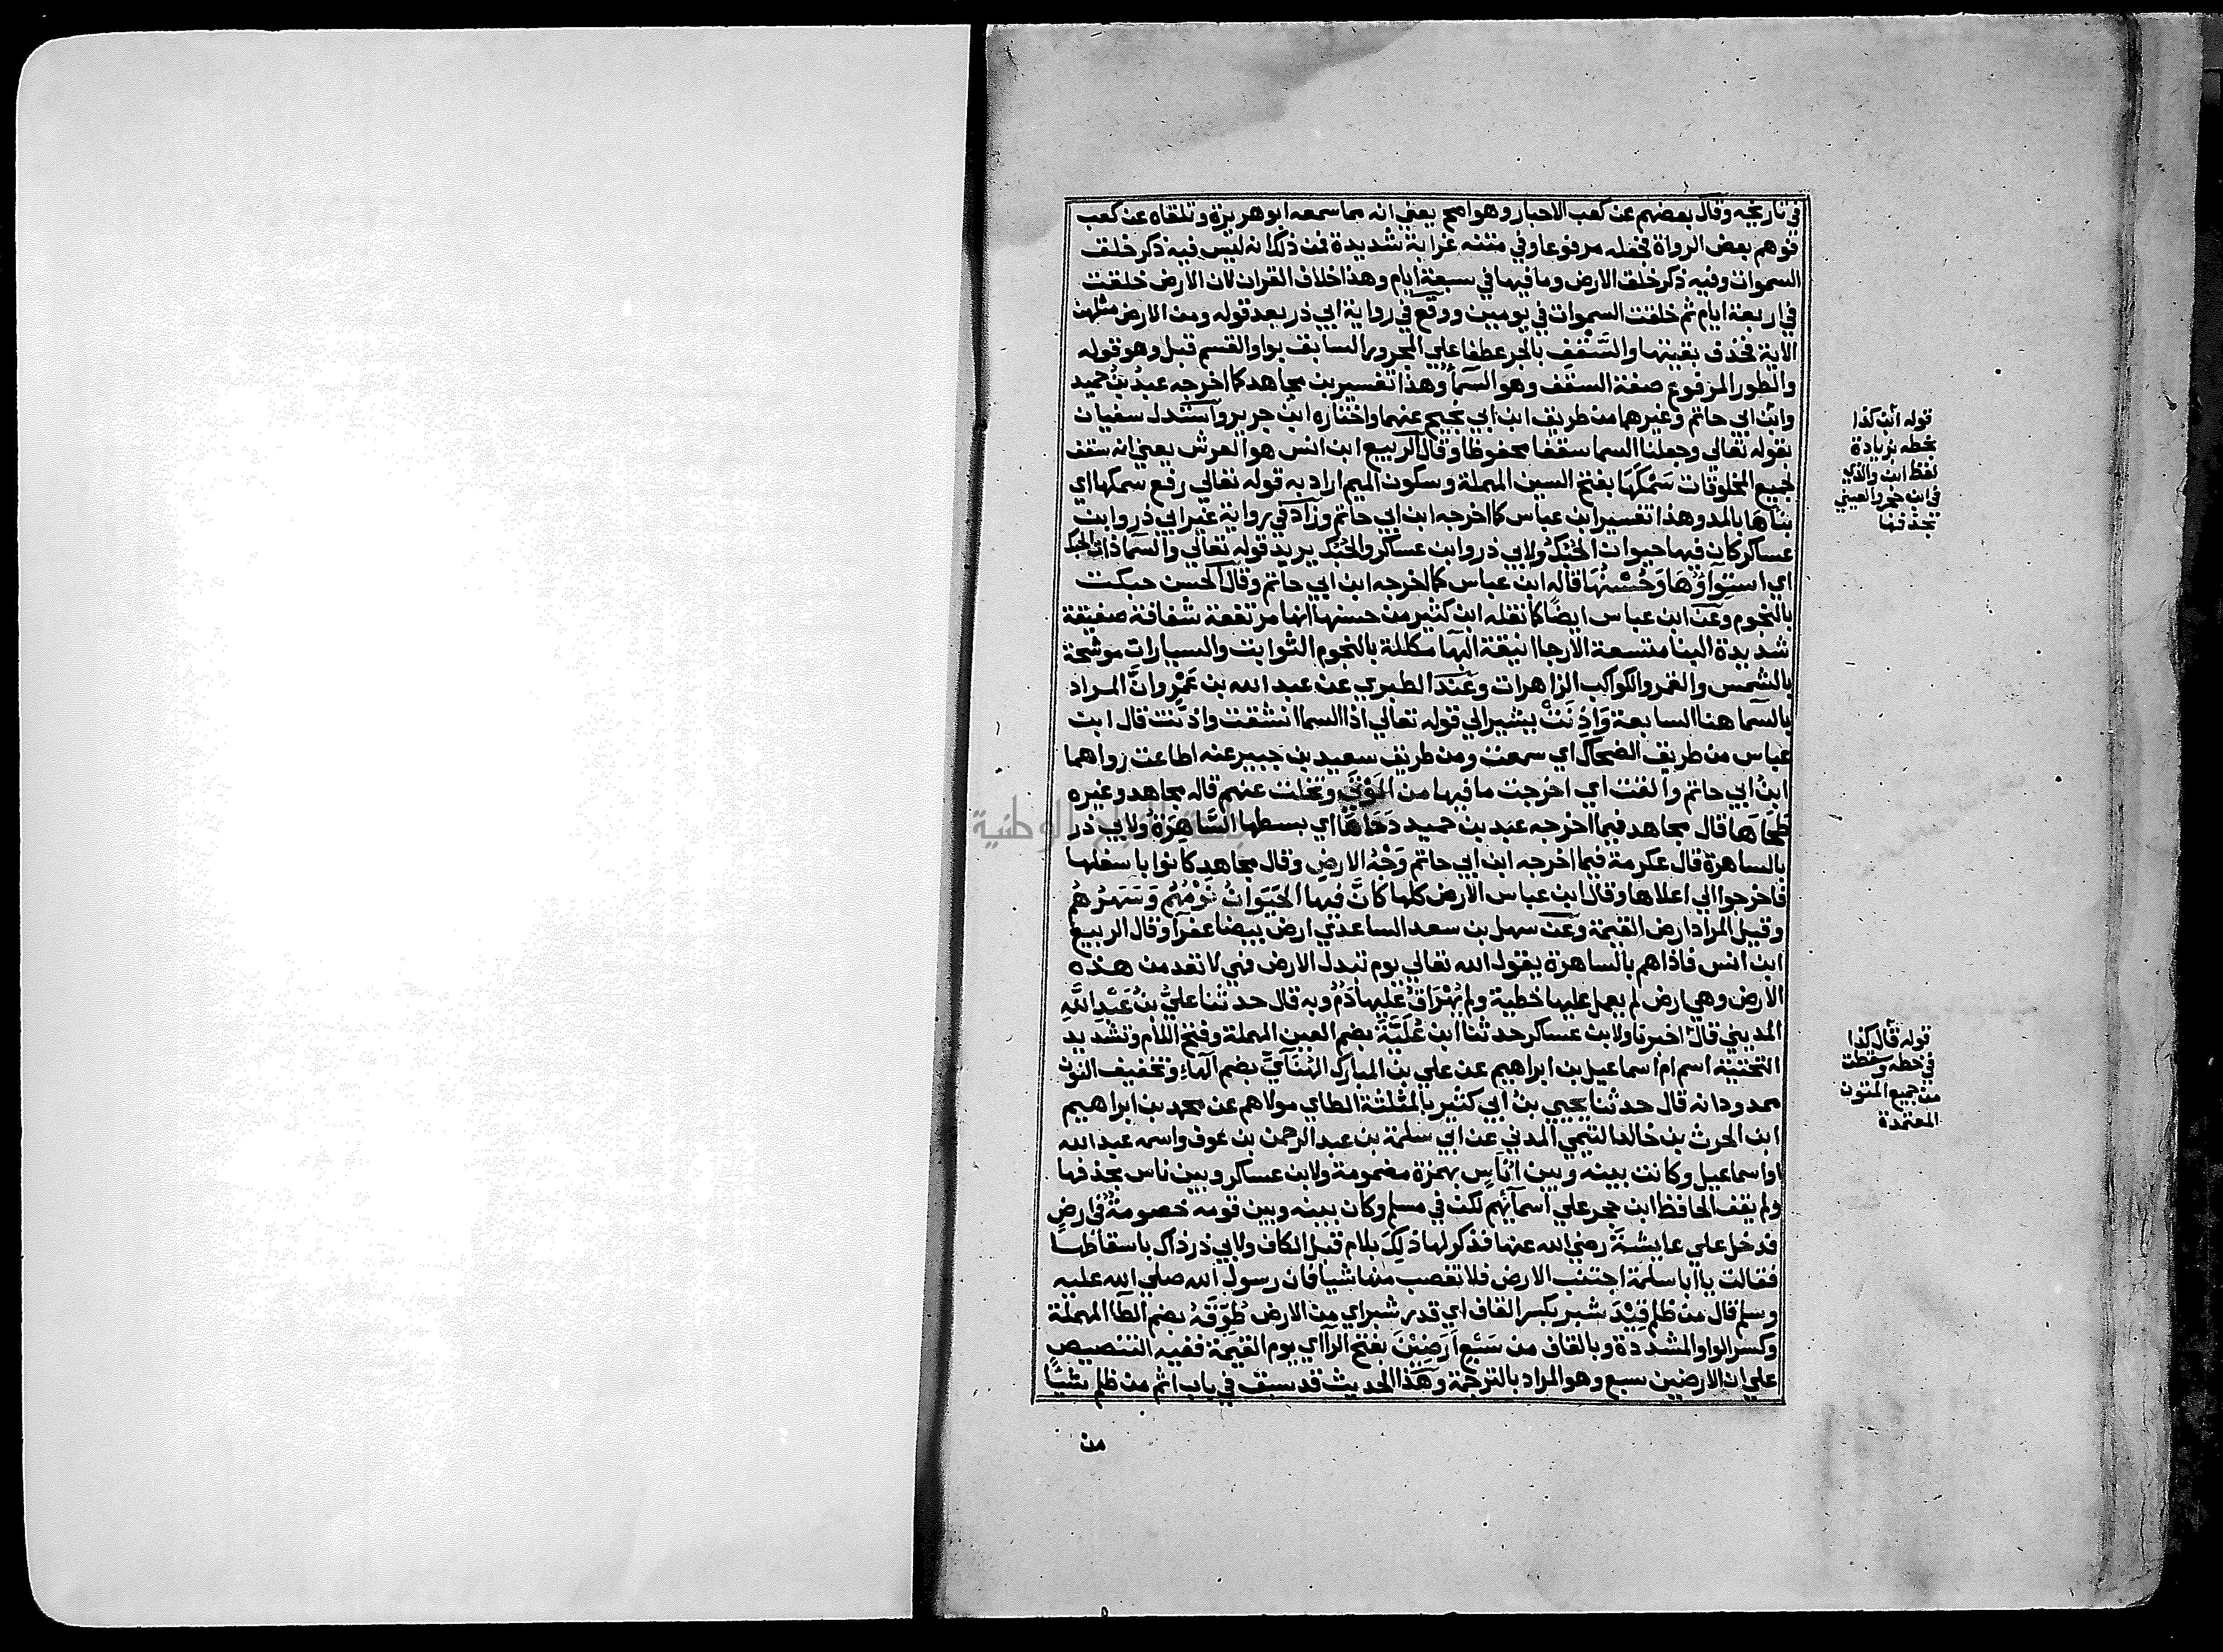 في تاريخه وقال بعضهم عن كعب الاحبار وهو اصح يعني انه مما سمعه ابو هريرة وتلقاه عن كعب
فوهم بعض الرواة فجعله مرفوعا وفي متنه غرابة شديدة فمن ذلك انه ليس فيه ذكر خلق
السموات وفيه ذكر خلق الارض وما فيها في سبعة ايام وهذا خلاف القران لان الارض خلقت
في اربعة ايام ثم خلقت السموات في يومين ووقع في رواية ابي ذر بعد قوله ومن الارض مثلهن
الاية فحذف بقيتها والسَّقْفِ بالجر عطفا علي المجرور السابق بواو القسم قبل وهو قوله
والطور المرفوع صفة السقف وهو السَّمَاءُ وهذا تفسير بن مجاهد كما اخرجه عبدُ بنُ حميد
وابن ابي حاتم وغيرهما من طريق ابن ابي نجيح عنهما واختاره ابن جرير واستدل سفيان
بقوله تعالي وجعلنا السما سقفا محفوظا وقال الربيع ابن انس هو العرش يعني انه سقف
لجميع المخلوقات سَمْكَهَا بفتح السين المهملة وسكون الميم اراد به قوله تعالي رفع سمكها اي
بناها بالمد وهذا تفسير ابن عباس كما اخرجه ابن ابي حاتم وزاد في رواية غير ابي ذر وابن
عساكر كان فيها حيوان الحُبُكُ ولابي ذر وابن عساكر والحُبُك يريد قوله تعالي والسما ذات الحبك
اي استِوَاؤُهَا وَحُسْنُهَا قاله ابن عباس كما اخرجه ابن ابي حاتم وقال الحسن حبكت
بالنجوم وعن ابن عباس ايضًا كما نقله ابن كثير من حسنها انها مرتفعة شفافة صفيقة
شديدة البنا متسعة الارجا انيقة البها مكللة بالنجوم الثوابت والسيارات موشحة
بالشمس والقمر والكواكب الزاهرات وعند الطبري عن عبد الله بن عَمْرٍو انَّ المراد
بالسما هنا السابعة وَاذِنَتْ يشير الي قوله تعالي اذا السما انشقت واذنت قال ابن
عباس من طريق الضحاك اي سمعت ومن طريق سعيد بن جبير عنه اطاعت رواهما
ابنُ ابي حاتم والقت اي اخرجت ما فيها من المَوْتَى وتخلت عنهم قاله مجاهد وغيره
طَحَاهَا قال مجاهد فيما اخرجه عبد بن حميد دَحَاهَا اي بسطها السَّاهِرَةُ ولابي ذر
بالساهرة قال عكرمة فيما اخرجه ابن ابي حاتم وَجْهُ الارضِ وقال مجاهد كانوا باسفلها
فاخرجوا الي اعلاها وقال ابن عباس الارض كلها كانَ فيها الحَيَوَانُ نَوْمُهُمْ وَسَهَرُهُمْ
وقيل المراد ارض القيمة وعن سهل بن سعد الساعدي ارض بيضا عفرا وقال الربيع
ابن انس فاذا هم بالساهرة يقول الله تعالي يوم تبدل الارض فهي لا تعد من هذه
الارض وهي ارض لم يعمل عليها خطية ولم يُهْرَاقْ عليها دَمٌ وبه قال حدثنا عليُّ بنُ عَبْدِ اللَّهِ
المديني قال اخبرنا ولابن عساكر حدثنا ابن عُلَيَّةَ بضم العين المهملة وفتح اللام وتشديد
التحتية اسم ام اسماعيل بن ابراهيم عن علي بن المبارك الهُنَآيِّ بضم الهاء وتخفيف النون
ممدودا انه قال حدثنا يحيي بنُ ابي كثير بالمثلثة الطاي مولاهم عن محمد بن ابراهيم
ابن الحرث بن خالد التيمي المدني عن ابي سلمة بن عبد الرحمن بن عوف واسمه عبد الله
او اسماعيل وكانت بينه وبين اُنَاسٍ بهمزة مضمومة ولابن عساكر وبين ناس بحذفها
ولم يقف الحافظ ابن حجر علي اسمآئهم لكن في مسلم وكان بينه وبين قومه خصومةٌ في ارضٍ
فدخل علي عايشة رضي الله عنها فذكر لها ذلك بلام قبل الكاف ولابي ذر ذاك باسقاطها
فقالت يا ابا سلمة اجتنب الارض فلا تغصب منها شيا فان رسول الله صلي الله عليه
وسلم قال من ظلم قِيْدَ شبر بكسر القاف اي قدر شبر اي من الارض طُوِّقَهُ بضم الطا المهملة
وكسر الواو المشددة وبالقاف من سَبْعِ اَرَضِيْنَ بفتح الرا اي يوم القيمة ففيه التنصيص
علي ان الارضين سبع وهو المراد بالترجمة وهذا الحديث قد سبق في باب اثم من ظلم شيئًا
من
قوله ابن كذا
بخطه بزيادة
لفظ ابن والذي
في ابن حجر والعيني
بحذفها
قوله قال كذا
في خطه وسقطت
من جميع المتون
المعتمدة